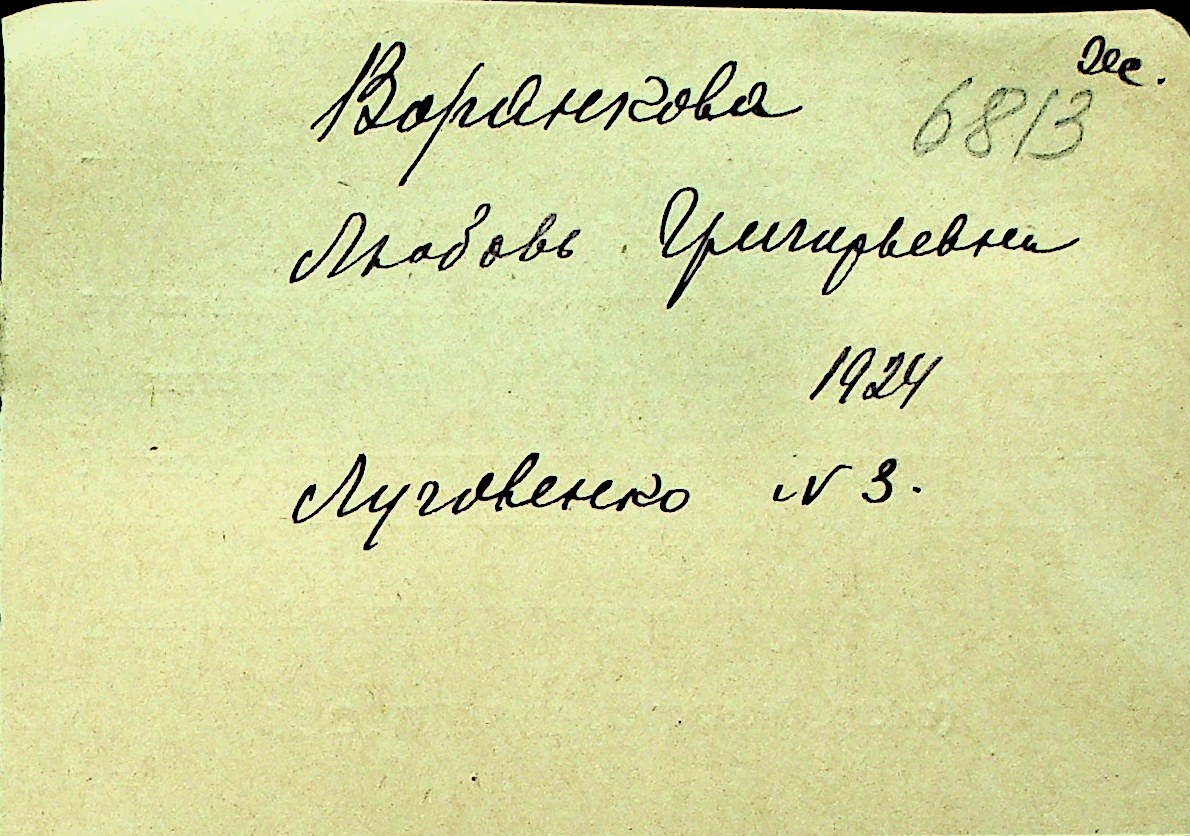 же.
Воранкова 6813
Любовь Григорьевна
1924
Луговенко N 3.